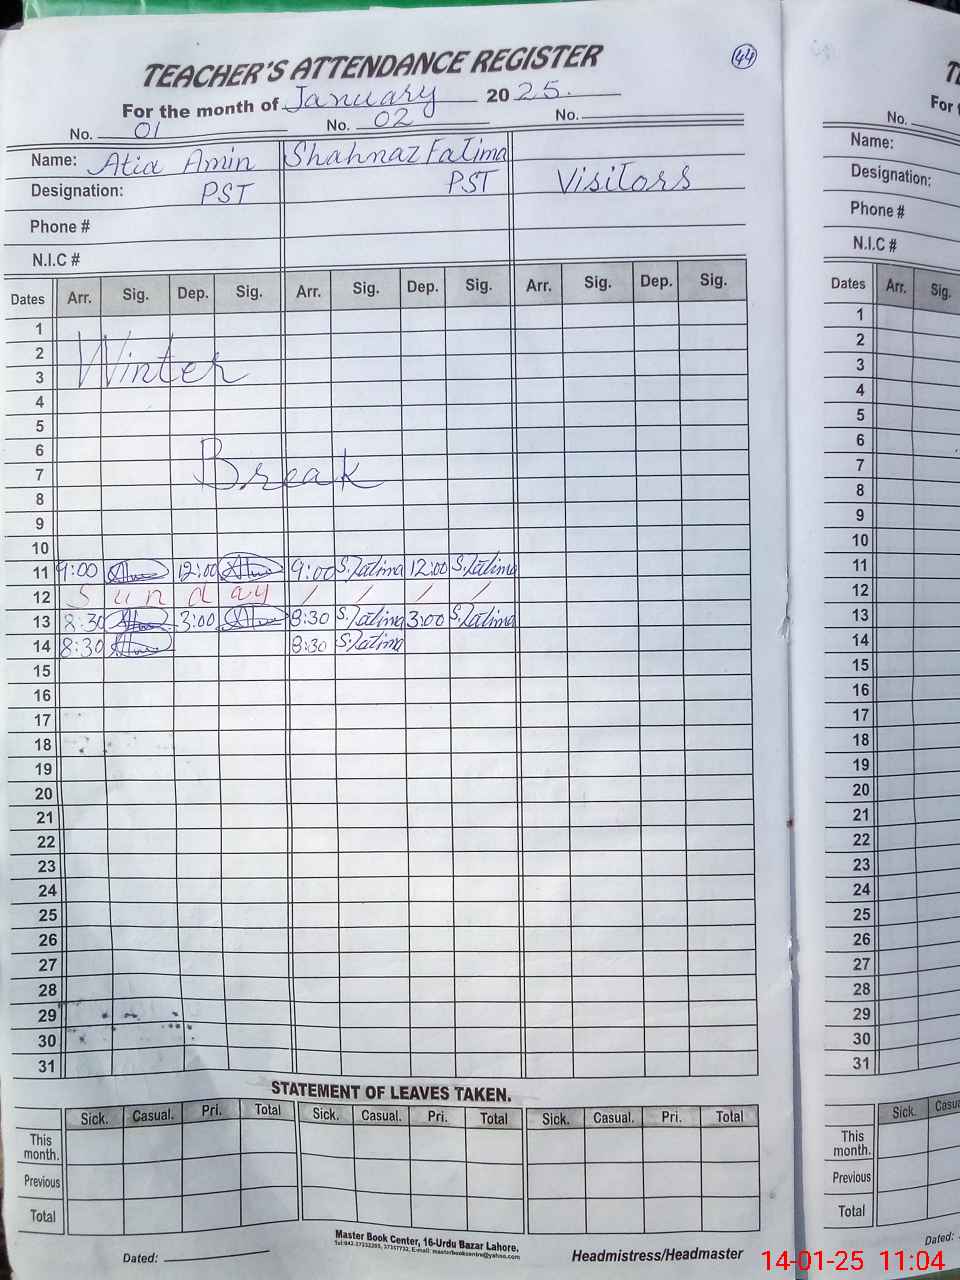 TEACHER'S ATTENDANCE REGISTER
44
For the month of January 2025.
No. 01 No. 02 No.
Name: Atia Amin Shahnaz Fatima
Designation: PST PST Visitors
Phone #
N.I.C #
Dates Arr. Sig. Dep. Sig. Arr. Sig. Dep. Sig. Arr. Sig. Dep. Sig.
1
2 Winter
3
4
5
6
7 Break
8
9
10
11 9:00 12:00 9:00 S.Fatima 12:00 S.Fatima
12 Sunday / / / /
13 8:30 3:00 8:30 S.Fatima 3:00 S.Fatima
14 8:30 8:30 S.Fatima
15
16
17
18
19
20
21
22
23
24
25
26
27
28
29
30
31
STATEMENT OF LEAVES TAKEN.
Sick. Casual. Pri. Total Sick. Casual. Pri. Total Sick. Casual. Pri. Total
This month.
Previous
Total
Master Book Center, 16-Urdu Bazar Lahore.
Dated: Headmistress/Headmaster
For
No.
Name:
Designation:
Phone #
N.I.C #
Dates Arr. Sig.
1
2
3
4
5
6
7
8
9
10
11
12
13
14
15
16
17
18
19
20
21
22
23
24
25
26
27
28
29
30
31
Sick.
This month.
Previous
Total
Dated:
14-01-25 11:04